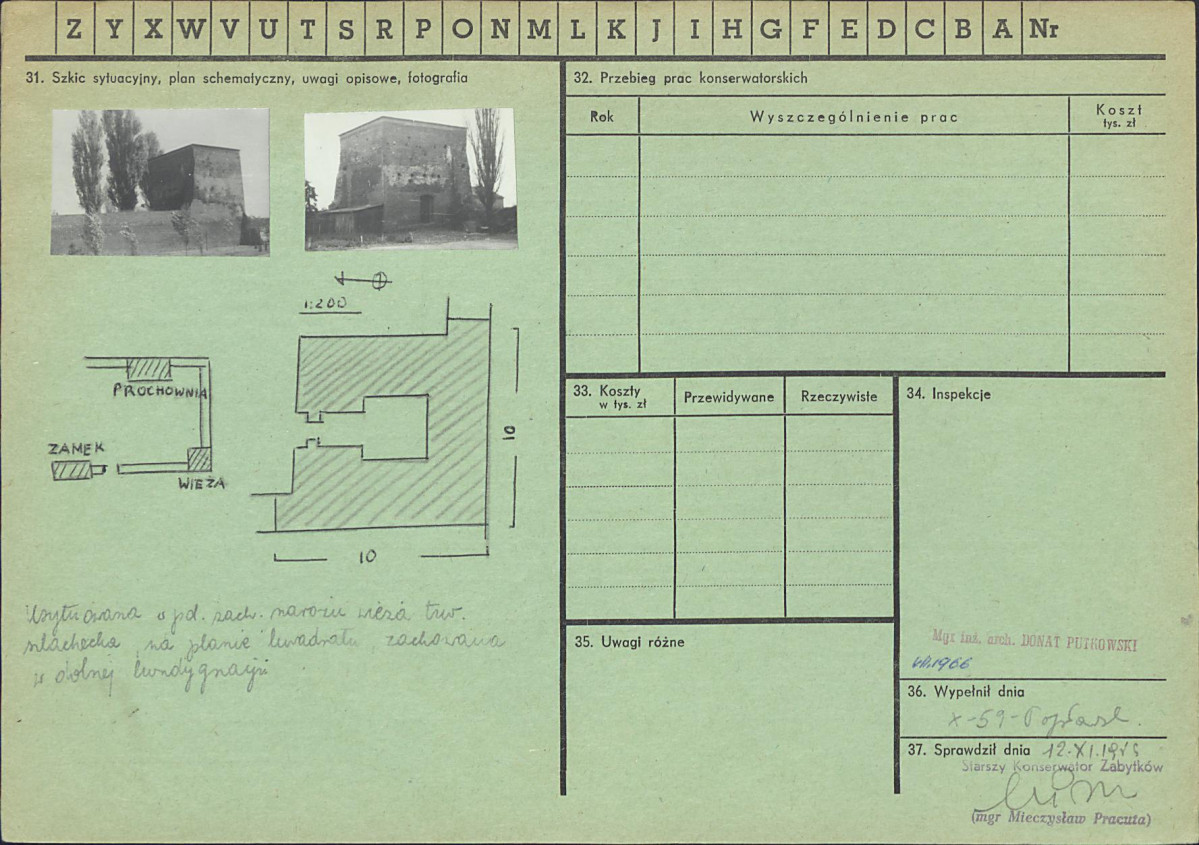 Z Y X W V U T S R P O N M L K J I H G F E D C B A Nr
31. Szkic sytuacyjny, plan schematyczny, uwagi opisowe, fotografia
1:200
PROCHOWNIA
ZAMEK
WIEŻA
10
10
Usytuowana w pd. zach. narożu wieża tzw.
szlachecka, na planie kwadratu, zachowana
w dolnej kondygnacji
32. Przebieg prac konserwatorskich
Rok
Wyszczególnienie prac
Koszt
tys. zł
33. Koszty
w tys. zł
Przewidywane
Rzeczywiste
34. Inspekcje
Mgr inż. arch. DONAT PUTKOWSKI
VII.1966
35. Uwagi różne
36. Wypełnił dnia
X-59-
37. Sprawdził dnia 12.XI.
Starszy Konserwator Zabytków
(mgr Mieczysław Pracuta)